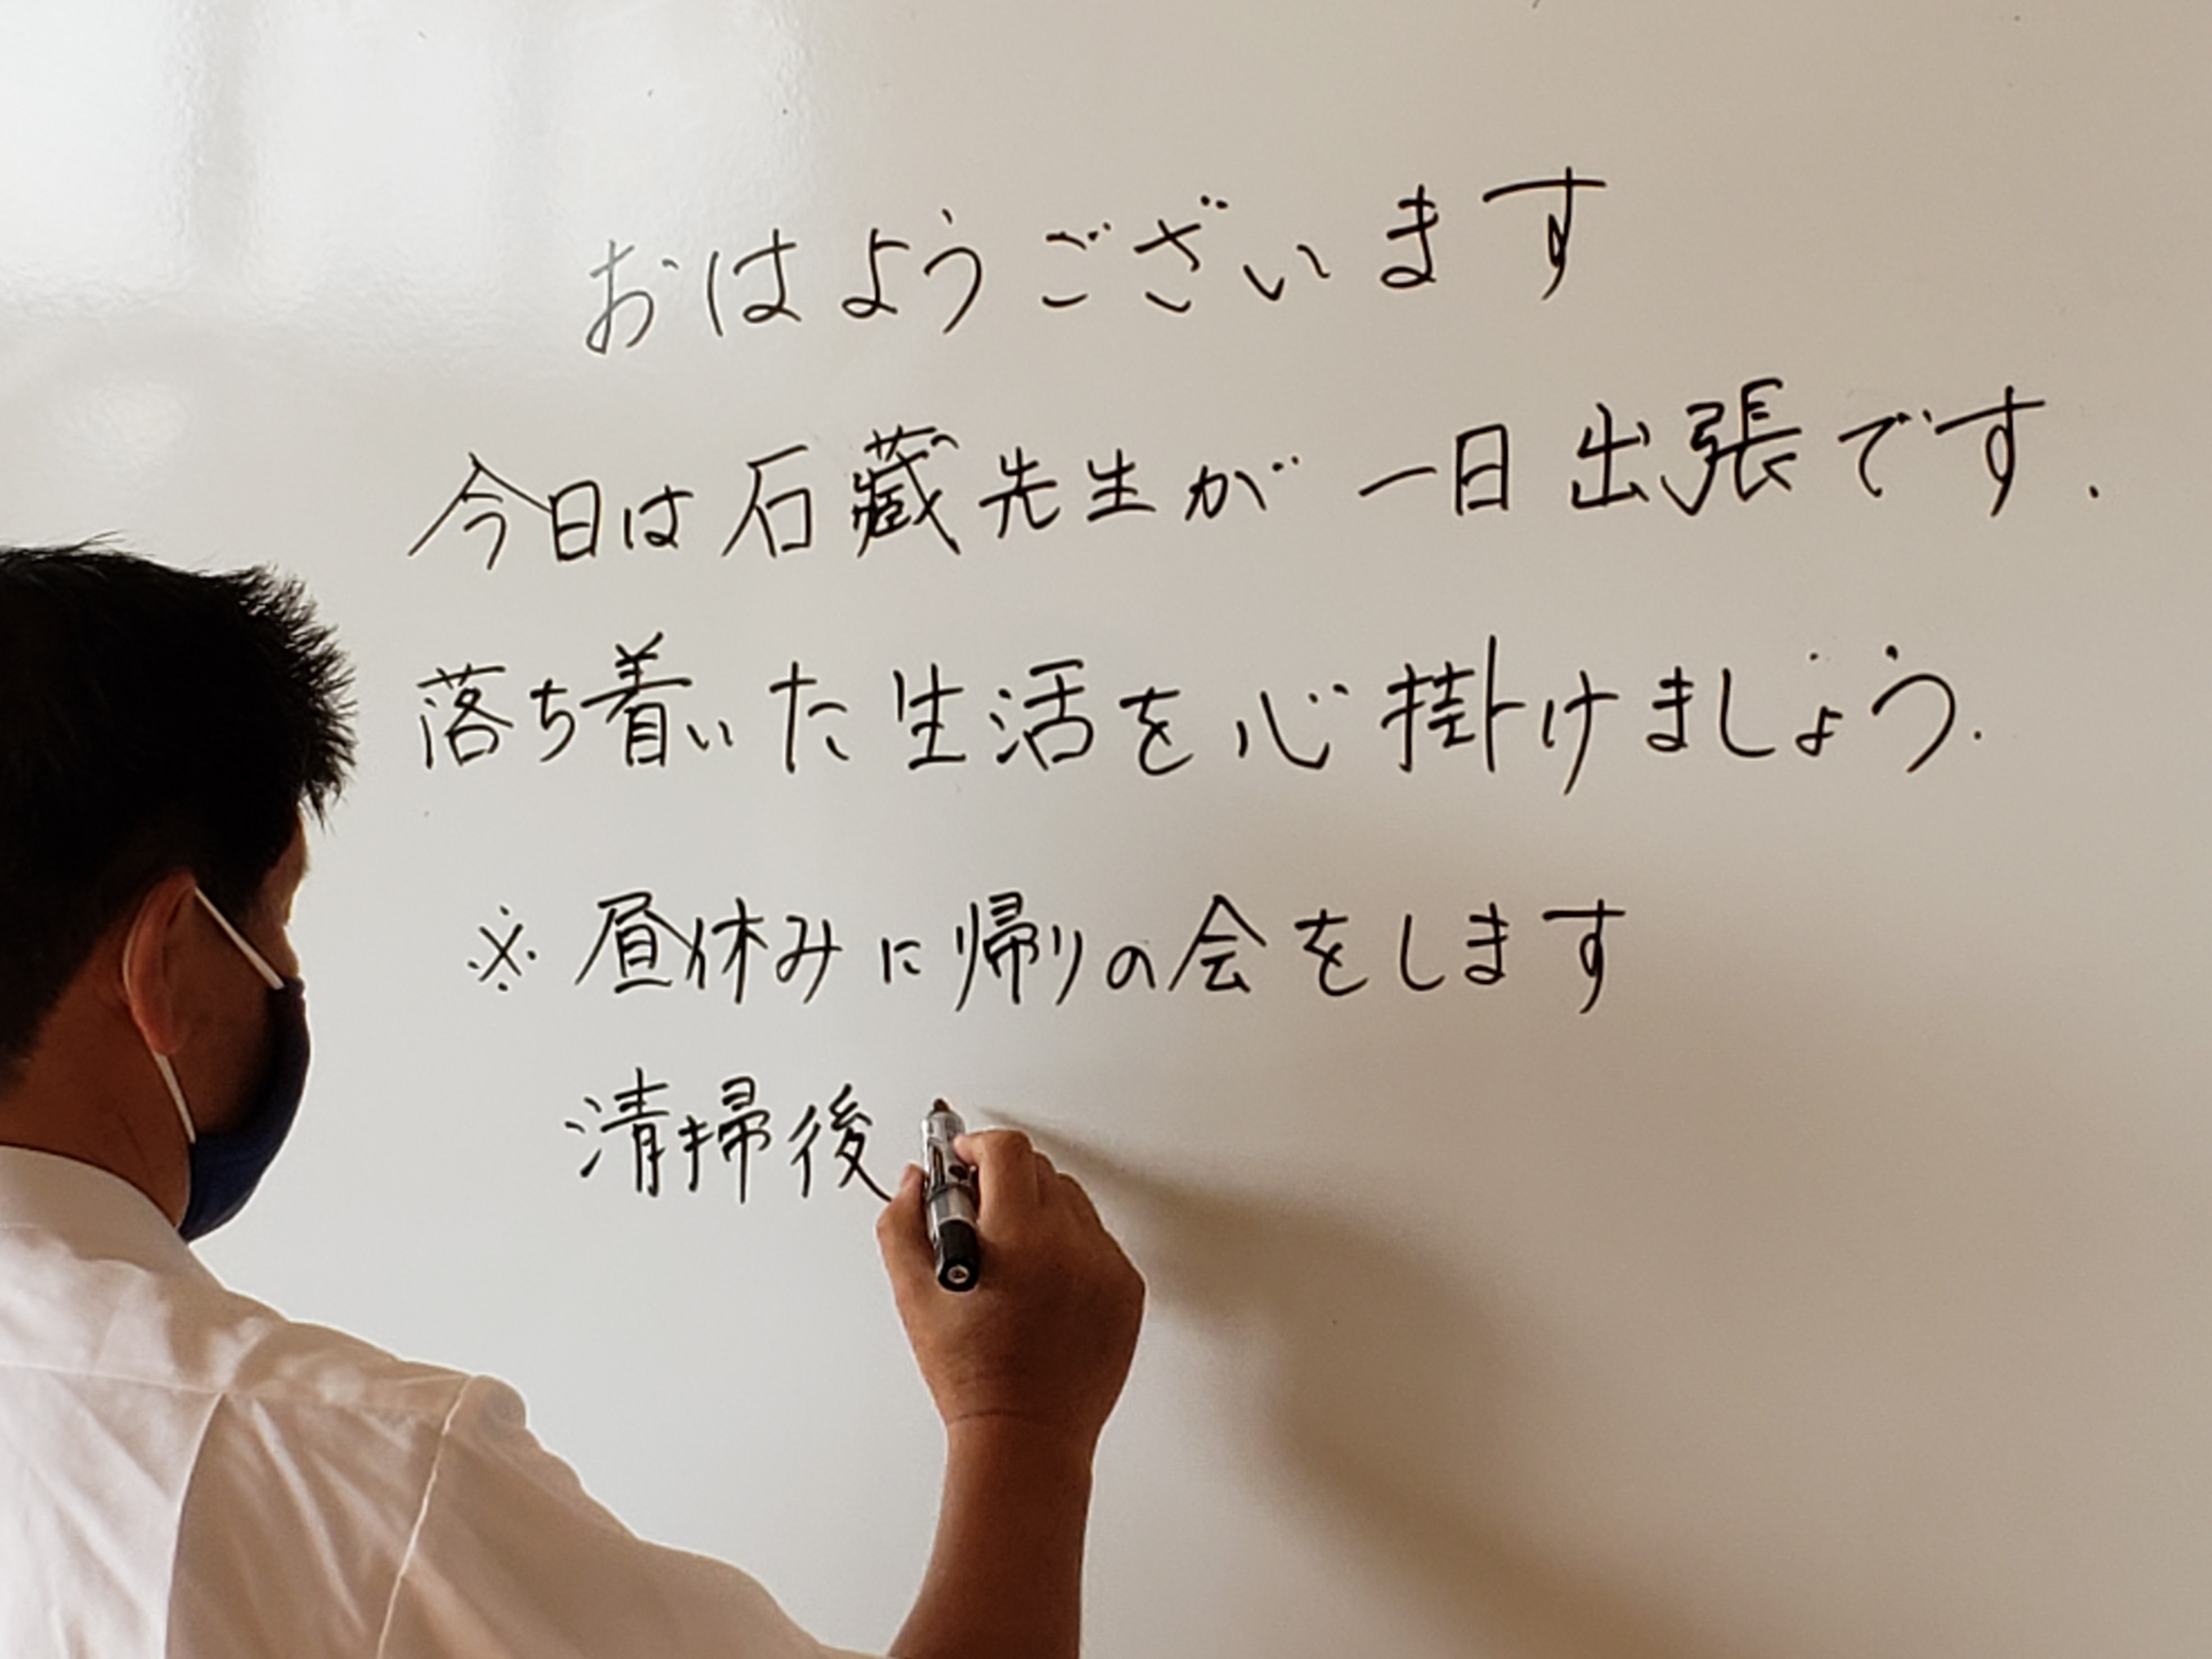 おはようございます
今日は石蔵先生が一日出張です.
落ち着いた生活を心掛けましょう.
※昼休みに帰りの会をします
清掃後